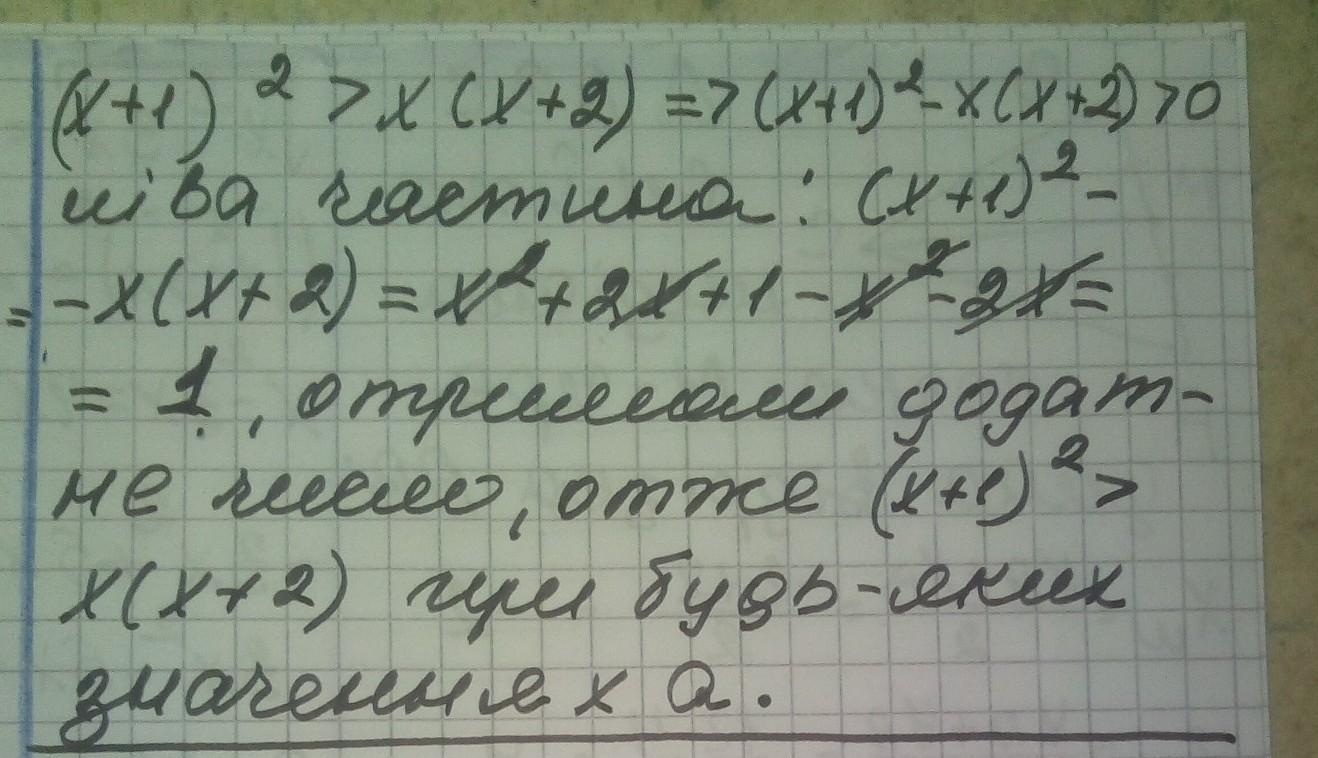 (x+1)² > x(x+2) => (x+1)² - x(x+2) > 0
ліва частина: (x+1)² -
= - x(x+2) = x² + 2x + 1 - x² - 2x =
= 1, отримали додат-
не число, отже (x+1)² >
x(x+2) при будь-яких
значеннях a.